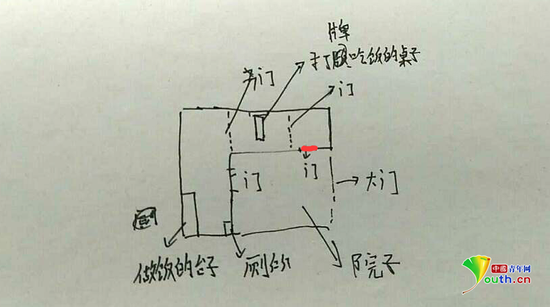 牌
旁门
打 吃饭的桌子
门
门
门
大门
做饭的台子
厕所
院子
中国青年网
Youth.cn